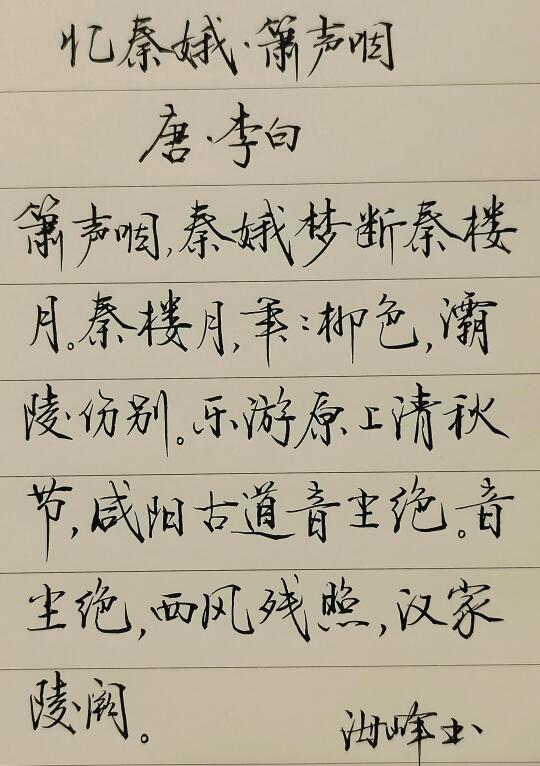 忆秦娥·箫声咽
唐·李白
箫声咽,秦娥梦断秦楼
月。秦楼月,年:柳色,灞
陵伤别。乐游原上清秋
节,咸阳古道音尘绝。音
尘绝,西风残照,汉家
陵阙。
海峰书